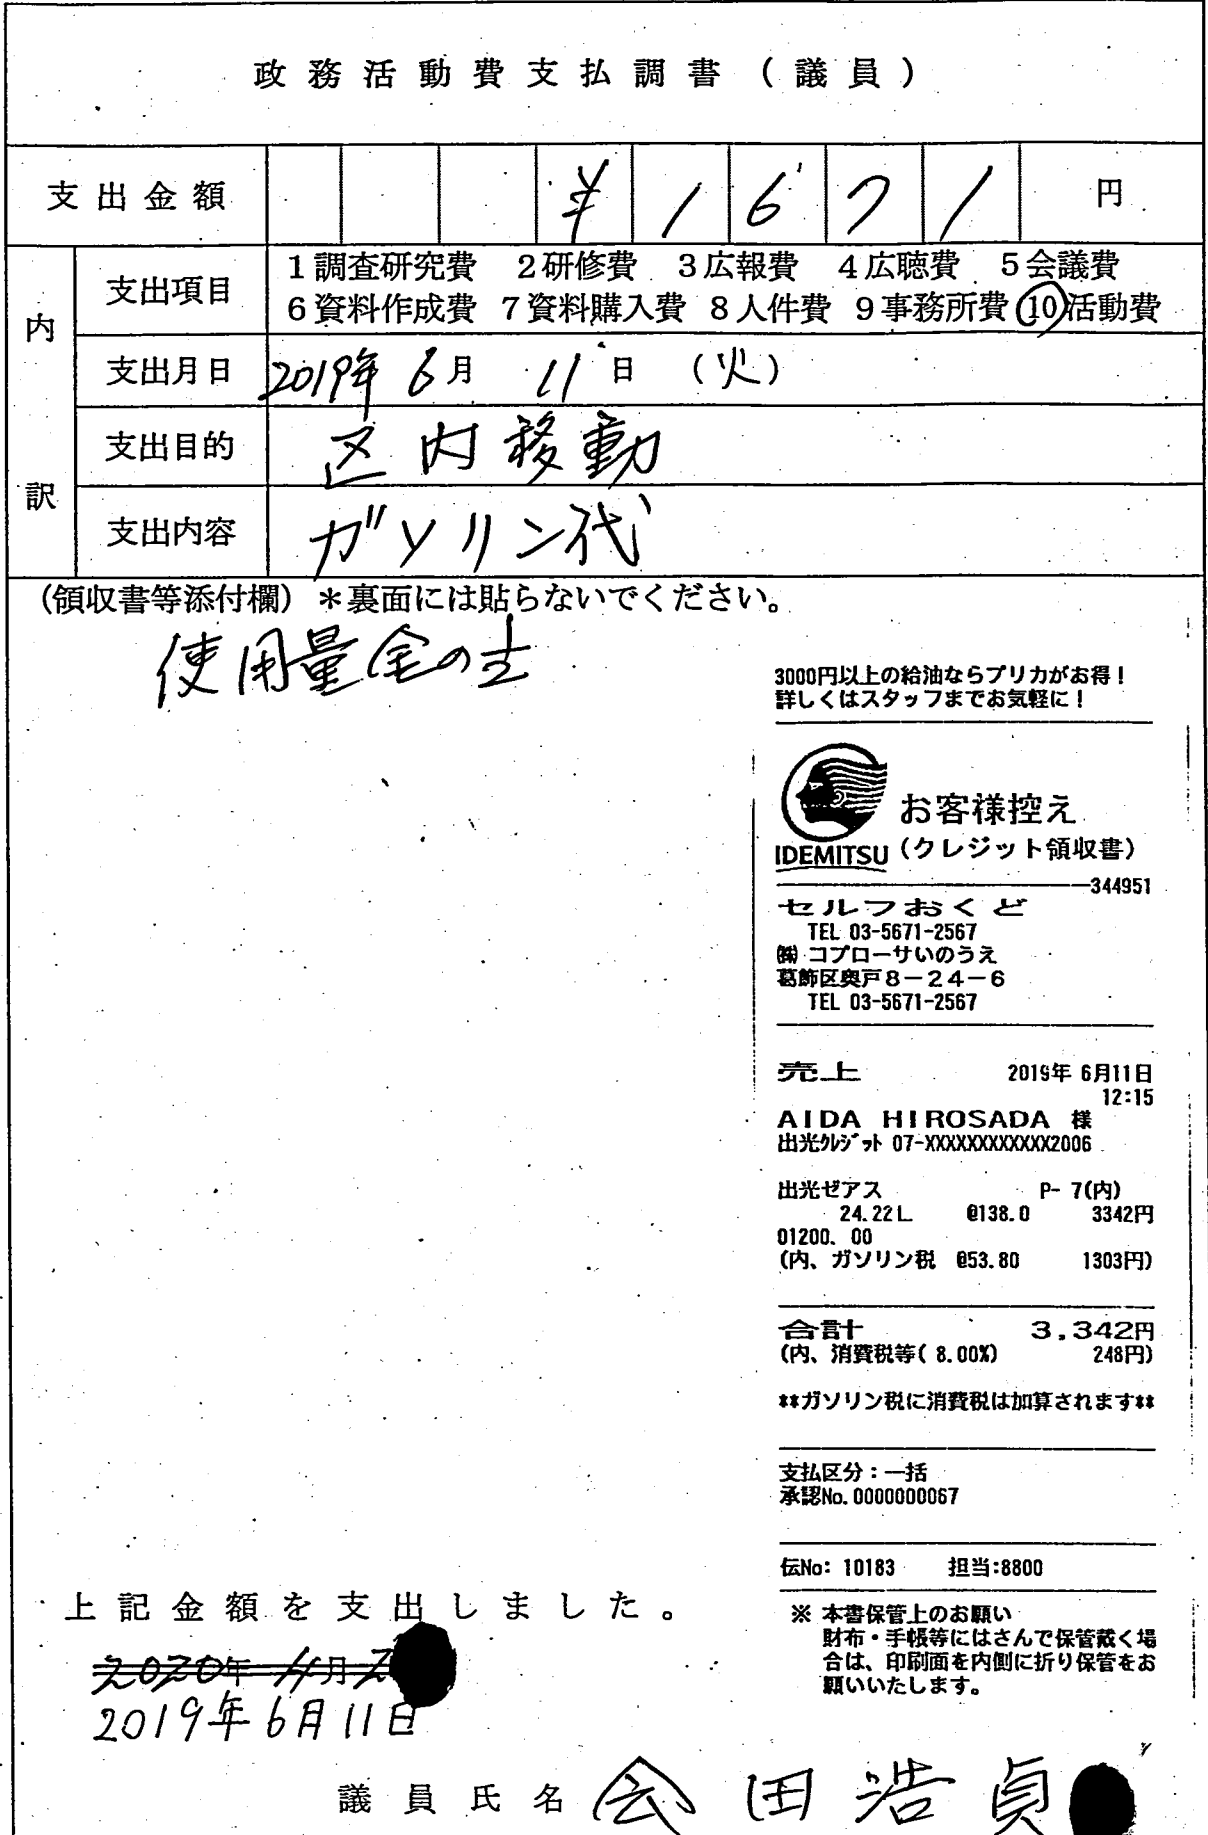 政務活動費支払調書（議員）
支出金額 ￥1671 円
内訳
支出項目 1調査研究費 2研修費 3広報費 4広聴費 5会議費
6資料作成費 7資料購入費 8人件費 9事務所費 10活動費
支出月日 2019年 6月 11日 （火）
支出目的 区内移動
支出内容 ガソリン代
（領収書等添付欄）＊裏面には貼らないでください。
使用量金の½
3000円以上の給油ならプリカがお得！
詳しくはスタッフまでお気軽に！
お客様控え
IDEMITSU （クレジット領収書）
344951
セルフおくど
TEL 03-5671-2567
㈱ コプローサいのうえ
葛飾区奥戸8－24－6
TEL 03-5671-2567
売上 2019年 6月11日
12:15
AIDA HIROSADA 様
出光ｸﾚｼﾞｯﾄ 07-XXXXXXXXXXXX2006
出光ゼアス P- 7(内)
24.22L @138.0 3342円
01200. 00
(内、ガソリン税 @53.80 1303円)
合計 3,342円
(内、消費税等( 8.00%) 248円)
**ガソリン税に消費税は加算されます**
支払区分：一括
承認No.0000000067
伝No: 10183 担当:8800
※ 本書保管上のお願い
財布・手帳等にはさんで保管戴く場
合は、印刷面を内側に折り保管をお
願いいたします。
上記金額を支出しました。
2020年 4月 2
2019年6月11日
議員氏名 会田浩貞